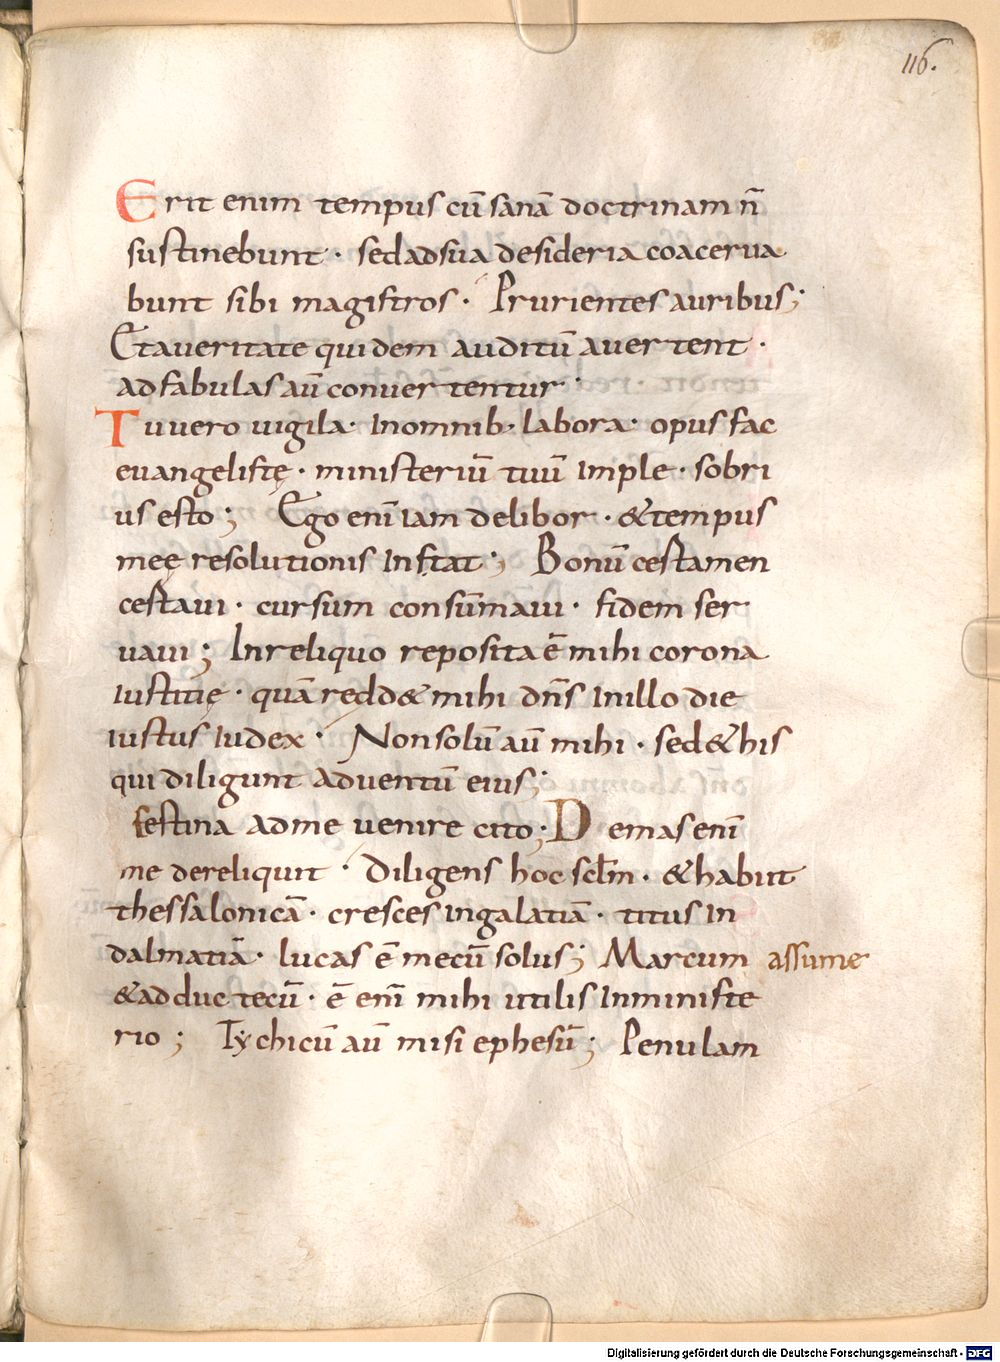 116.
Erit enim tempus cū sanā doctrinam n̄
sustinebunt · sed ad sua desideria coacerva
bunt sibi magistros · Prurientes auribus;
Et a veritate quidem auditū avertent ·
ad fabulas aū convertentur ·
Tu vero vigila · In omnib· labora · opus fac
evangelistę · ministeriū tuū Imple · sobri
us esto; Ego enī iam delibor · & tempus
meę resolutionis Instat; Bonū cestamen
cestavi · cursum consūmavi · fidem ser
vavi; In reliquo reposita ē mihi corona
Iustitię · quā redd& mihi dn̄s In illo die
iustus Iudex · Non solū aū mihi · sed & his
qui diligunt adventū eius;
festina ad me venire cito · Demas enī
me dereliquit · Diligens hoc sclm̄ · & habiit
thessalonicā · cresces In galatiā · titus In
dalmatiā · lucas ē mecū solus; Marcum assume
& adduc tecū · ē enī mihi utilis In ministe
rio; Tychicū aū misi ephesū; Penulam
Digitalisierung gefördert durch die Deutsche Forschungsgemeinschaft · DFG